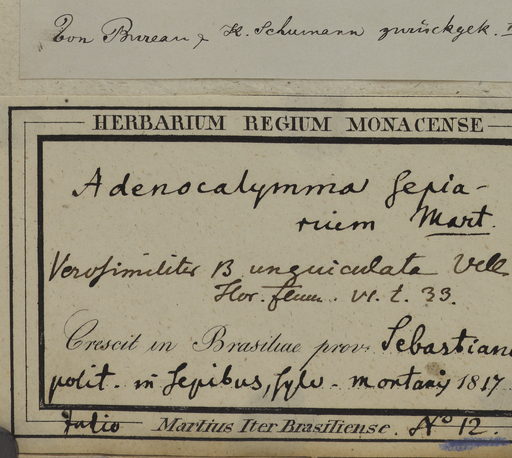 Von Bureau & K. Schumann zurückgek.
HERBARIUM REGIUM MONACENSE
Adenocalymma sepia-
rium Mart.
Verosimiliter B unguiculata Vell
Flor. flum. VI. t. 33.
Crescit in Brasiliae prov. Sebastiano
polit. in sepibus, sylv. montanis 1817.
Julio Martius Iter Brasiliense. No 12.